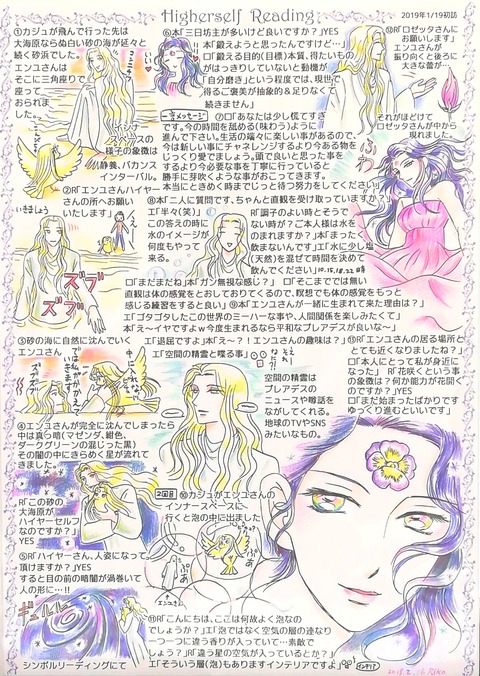 Higherself Reading
2019年1/19初話
①カジュが飛んで行った先は
大海原ならぬ白い砂の海が延々と
続く砂浜でした。
エンユさんは
そこに三角座りで
座って
おられま
した。
インナー
スペースの
様子の象徴は
静養、バカンス
インターバル。
②R「エンユさんハイヤー
さんの所へお願い
いたします」
いきましょう
ズブ
ズブ
③砂の海に自然に沈んでいく
エンユさん
ズブズブ
④エンユさんが完全に沈んでしまったら
中は真っ暗(マゼンダ、紺色、
ダークグリーンの混じった黒)
その闇の中にきらめく星が流れて
きました。
R「この砂の
大海原が
ハイヤーセルフ
なのですか?」
YES
⑤R「ハイヤーさん、人姿になって
頂けますか?」YES
すると目の前の暗闇が渦巻いて
人の形に…!!
ギュルル
シンボルリーディングにて
⑥本「三日坊主が多いけど良いですか?」YES
本「鍛えようと思ったんですけど…」
ロ「鍛える目的(目標)本質、得たいもの
がはっきりしていないと動機が
「自分磨き」という程度では、現世で
得るご褒美が抽象的&足りなくて
続きません」
一言メッセージ
⑦ロ「あなたは少し慌てすぎ
です。今の時間を舐める(味わう)ように
進んで下さい。生活の端々に楽しい事があるので、
今は新しい事にチャレンジするより今ある物を
じっくり愛でましょう。頭で良いと思った事を
するより今必要な事を丁寧に行っていると
勝手に芽吹くような事がおこってきます。
本当にときめく時までじっと待つ努力をしてください」
⑧本「二人に質問です、ちゃんと直観を受け取っていますか?」
エ「半々(笑)」
この答えの時に
水のイメージが
何度もやって
来る。
R「調子のよい時とそうで
ない時が?ご本人様は水を
のまれますか?」本「まったく
飲まないんです」エ「水に少し塩
(天然)を混ぜて時間を決めて
飲んでください」10.15.18.22時
ロ「まだまだね」本「ガン無視な感じ?」 ロ「そこまでは無い
直観は体の感覚をとおしておりてくるので、瞑想でも体の感覚をもっと
感じる練習をすると良い」⑨本「エンユさんが一緒に生まれて来た理由は?」
エ「ゴタゴタしたこの世界のミーハーな事や、人間関係を楽しみたくて」
本「え〜イヤですよw今度生まれるなら平和なプレアデスが良いな〜」
エ「退屈ですよ」本「え〜?!エンユさんの趣味は?」
エ「空間の精霊と喋る事」
空間の精霊は
プレアデスの
ニュースや噂話を
ながしてくれる。
地球のTVやSNS
みたいなもの。
2回目
⑩カジュがエンユさんの
インナースペースに
行くと泡の中に出ました
⑪R「こんにちは、ここは何故よく泡なの
でしょうか?」エ「泡ではなく空気の層の連なり
一つ一つに違う香りが入っていて…素敵
でしょう?」R「違う星の空気が入っているとか?」
エ「そういう層(泡)もありますインテリアですよ」
⑫R「ロゼッタさんに
お願いします」
エンユさんが
振り向くと後ろに
大きな蕾が…
それがほどけて
ロゼッタさんが中から
現れました。
ふわっ
⑬R「エンユさんの居る場所
とても近くなりましたね?」
ロ「本人にとって私が身近に
なった」 R「花咲くという事
の象徴は?何か能力が花開く
のですか?」YES
ロ「まだ始まったばかりです
ゆっくり進むといいです」